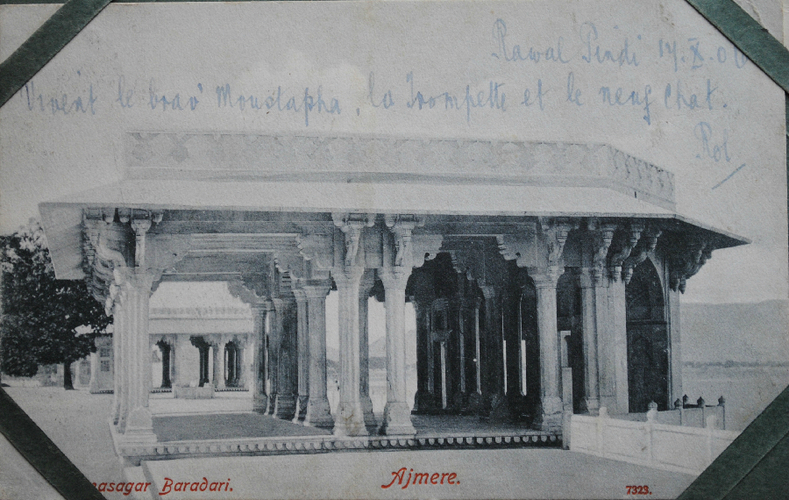 Rawal Pindi 17.X.06
Vivent le brav' Moustapha, la Trompette et le neuf Chat.
Rol
nasagar Baradari.
Ajmere.
7323.